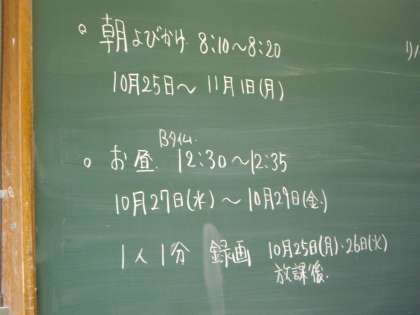 ○ 朝よびかけ 8:10〜8:20
10月25日〜 11月1日(月)
Bタイム
○ お昼 12:30〜12:35
10月27日(水)〜10月29日(金)
1人1分 録画 10月25日(月)・26日(火)
放課後.